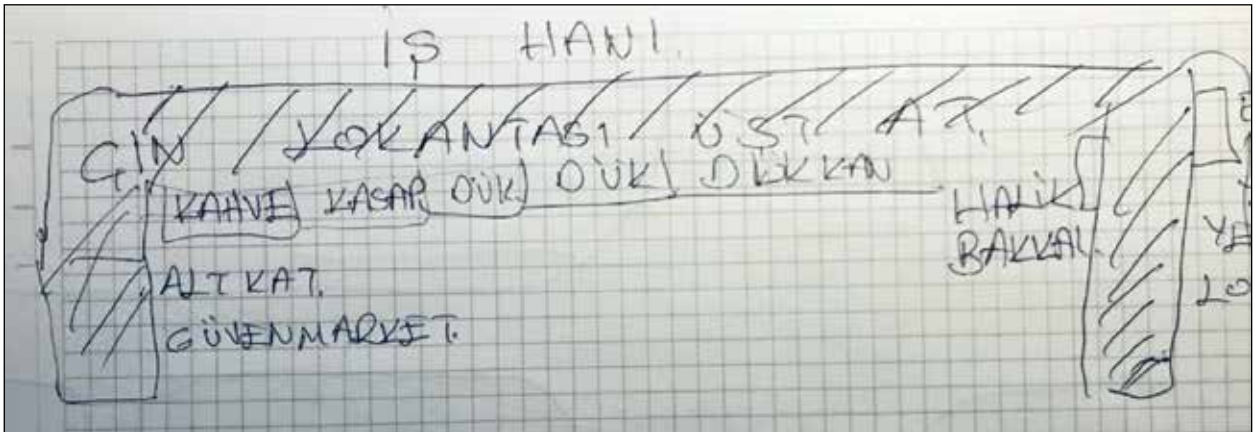 İŞ HANI.
ÇİN LOKANTASI ÜST AT.
KAHVE KASAP DÜK DÜK DÜKKAN
HALİK
BAKKAL.
ALT KAT.
GÜVENMARKET.
YE
LO